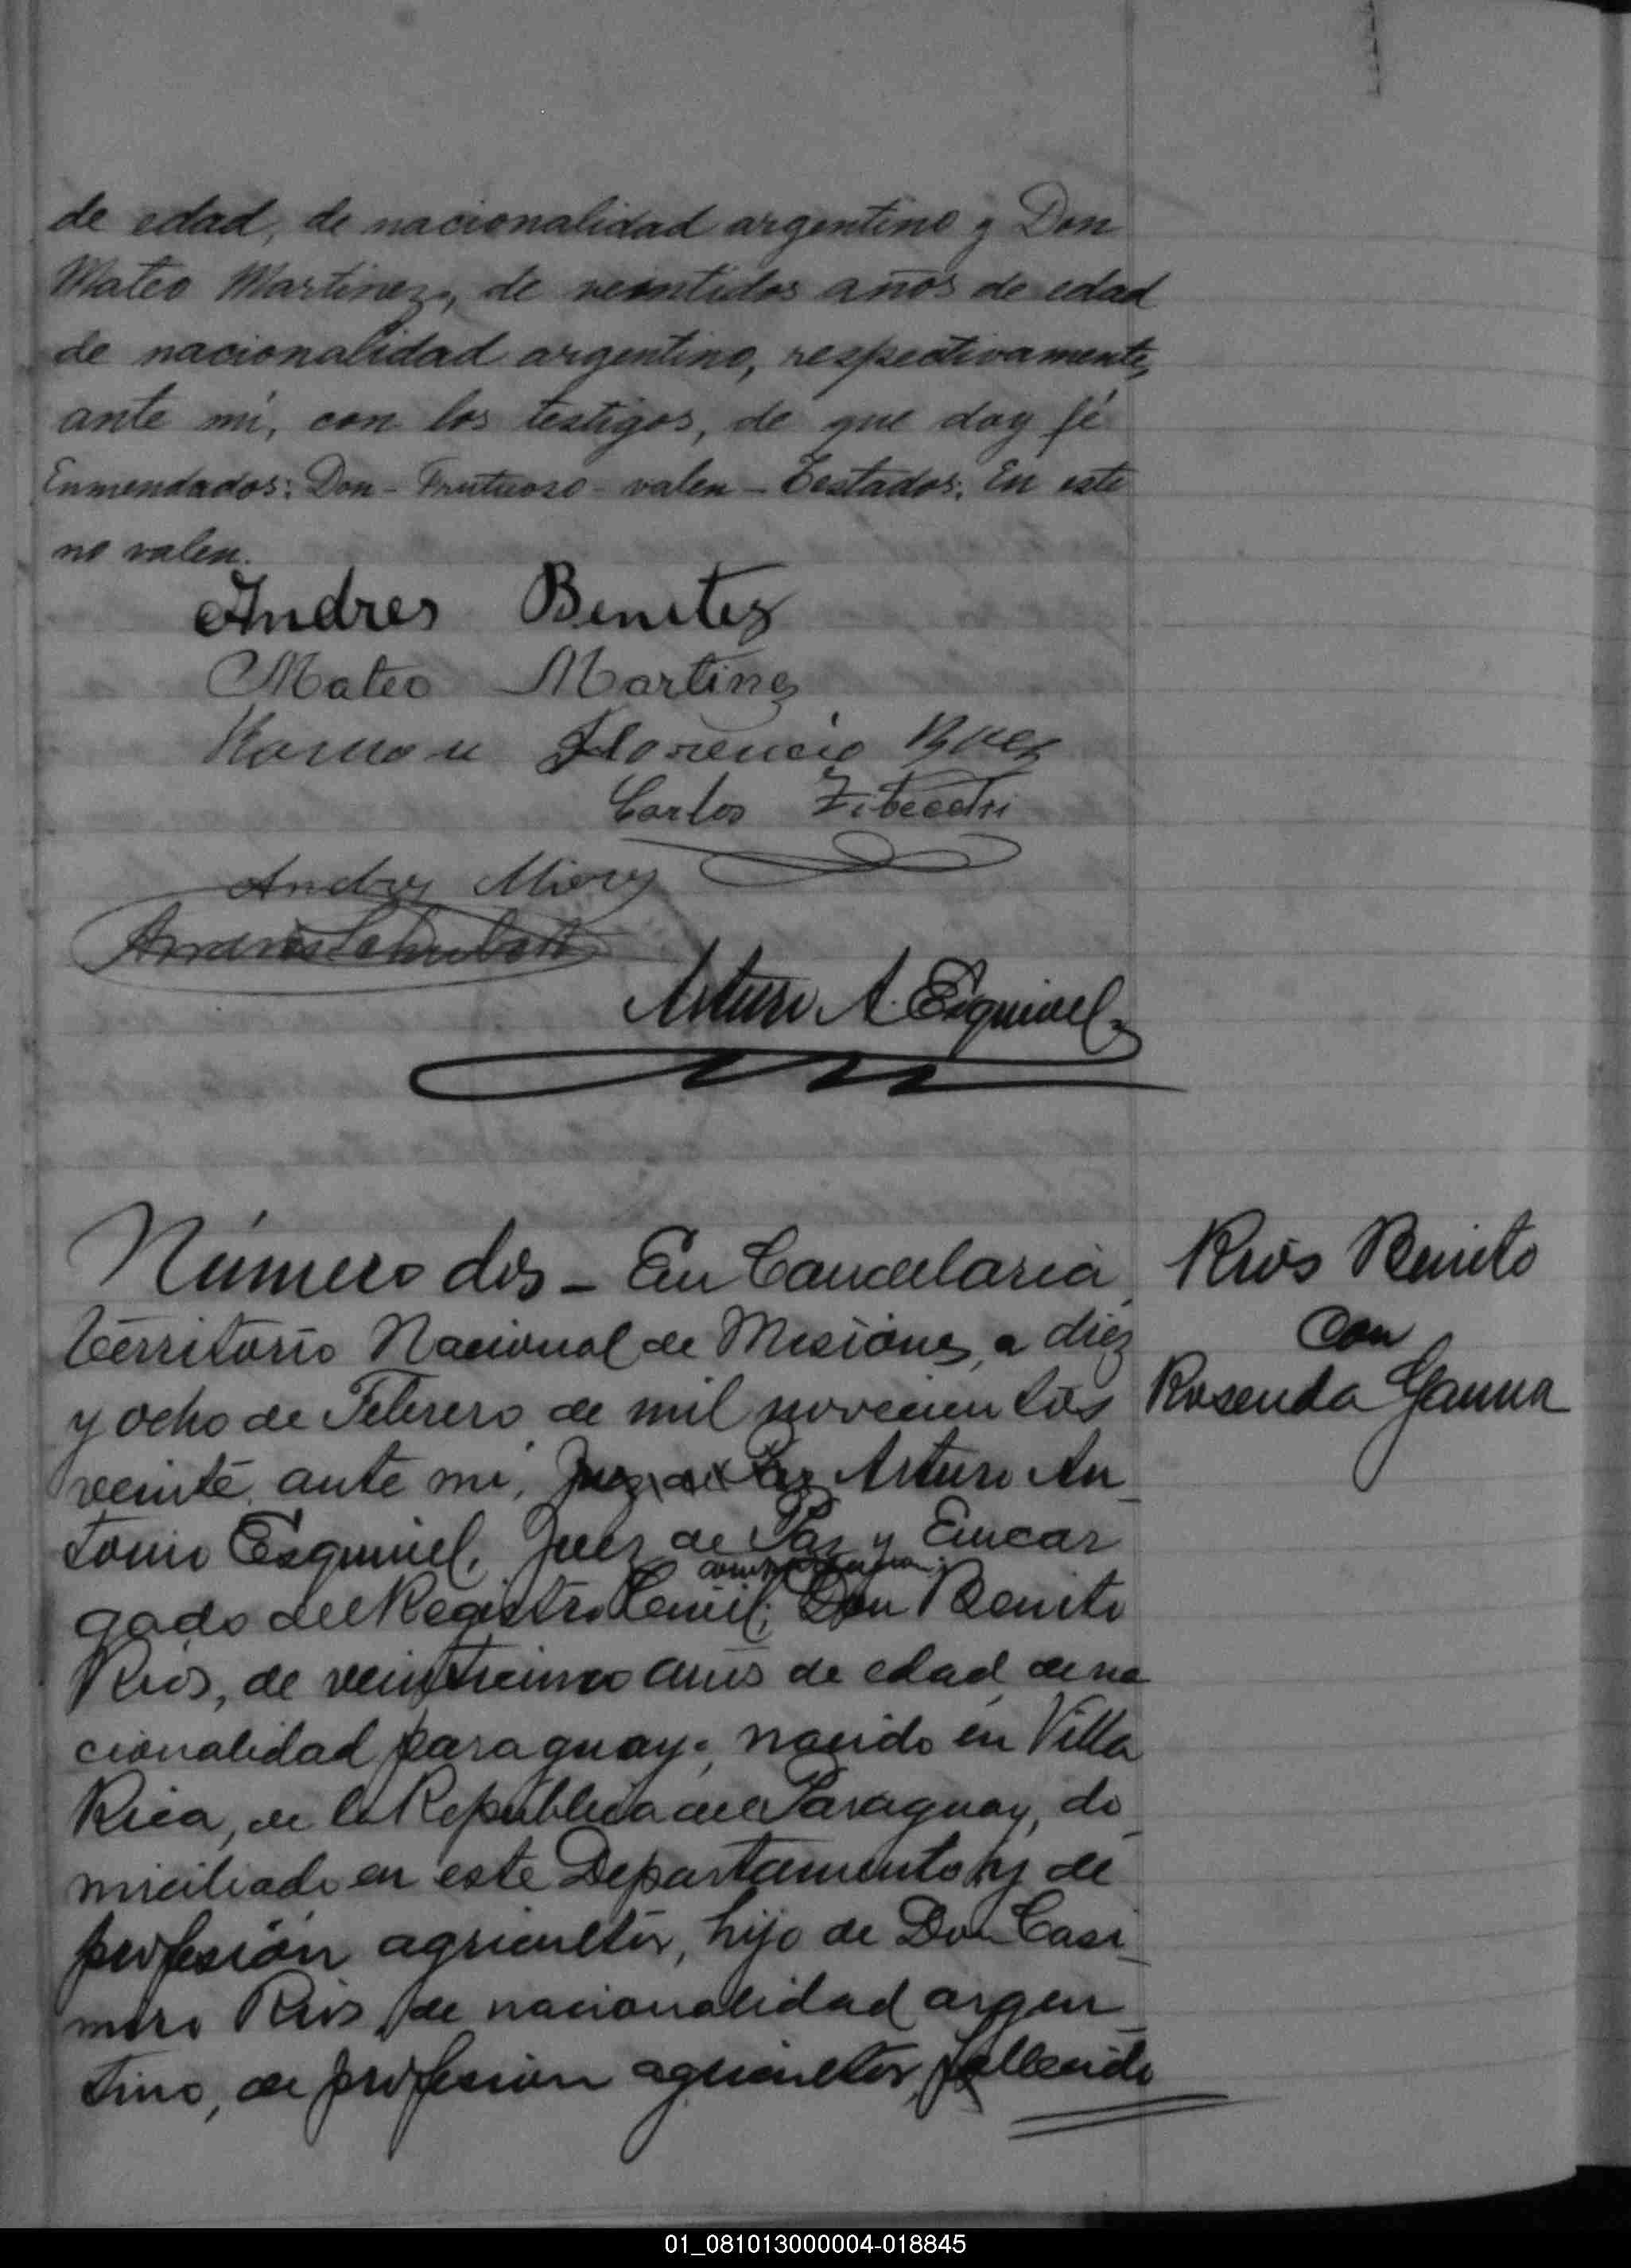 de edad, de nacionalidad argentino y Don
Mateo Martinez, de veintidos años de edad
de nacionalidad argentino, respectivamente,
ante mí, con los testigos, de que doy fé
Enmendados: Don - Frutuoso - valen - Testados: En este
no valen.
Andres Benitez
Mateo Martinez
Ramon Florencio
Carlos
Andres
Andres Schubert
Arturo A. Esquivel
Número dos - En Candelaria,
Territorio Nacional de Misiones, a diez
y ocho de Febrero de mil novecientos
veinte, ante mí, Juez de Paz Arturo An
tonio Esquivel, Juez de Paz y Encar
gado del Registro Civil; Don Benito
Rios, de veinticinco años de edad, de na
cionalidad paraguayo, nacido en Villa
Rica, de la República del Paraguay, do
miciliado en este Departamento y de
profesión agricultor, hijo de Don Casi
miro Rios, de nacionalidad argen
tino, de profesión agricultor, fallecido
Rios Benito
con
Rosenda
01_081013000004-018845